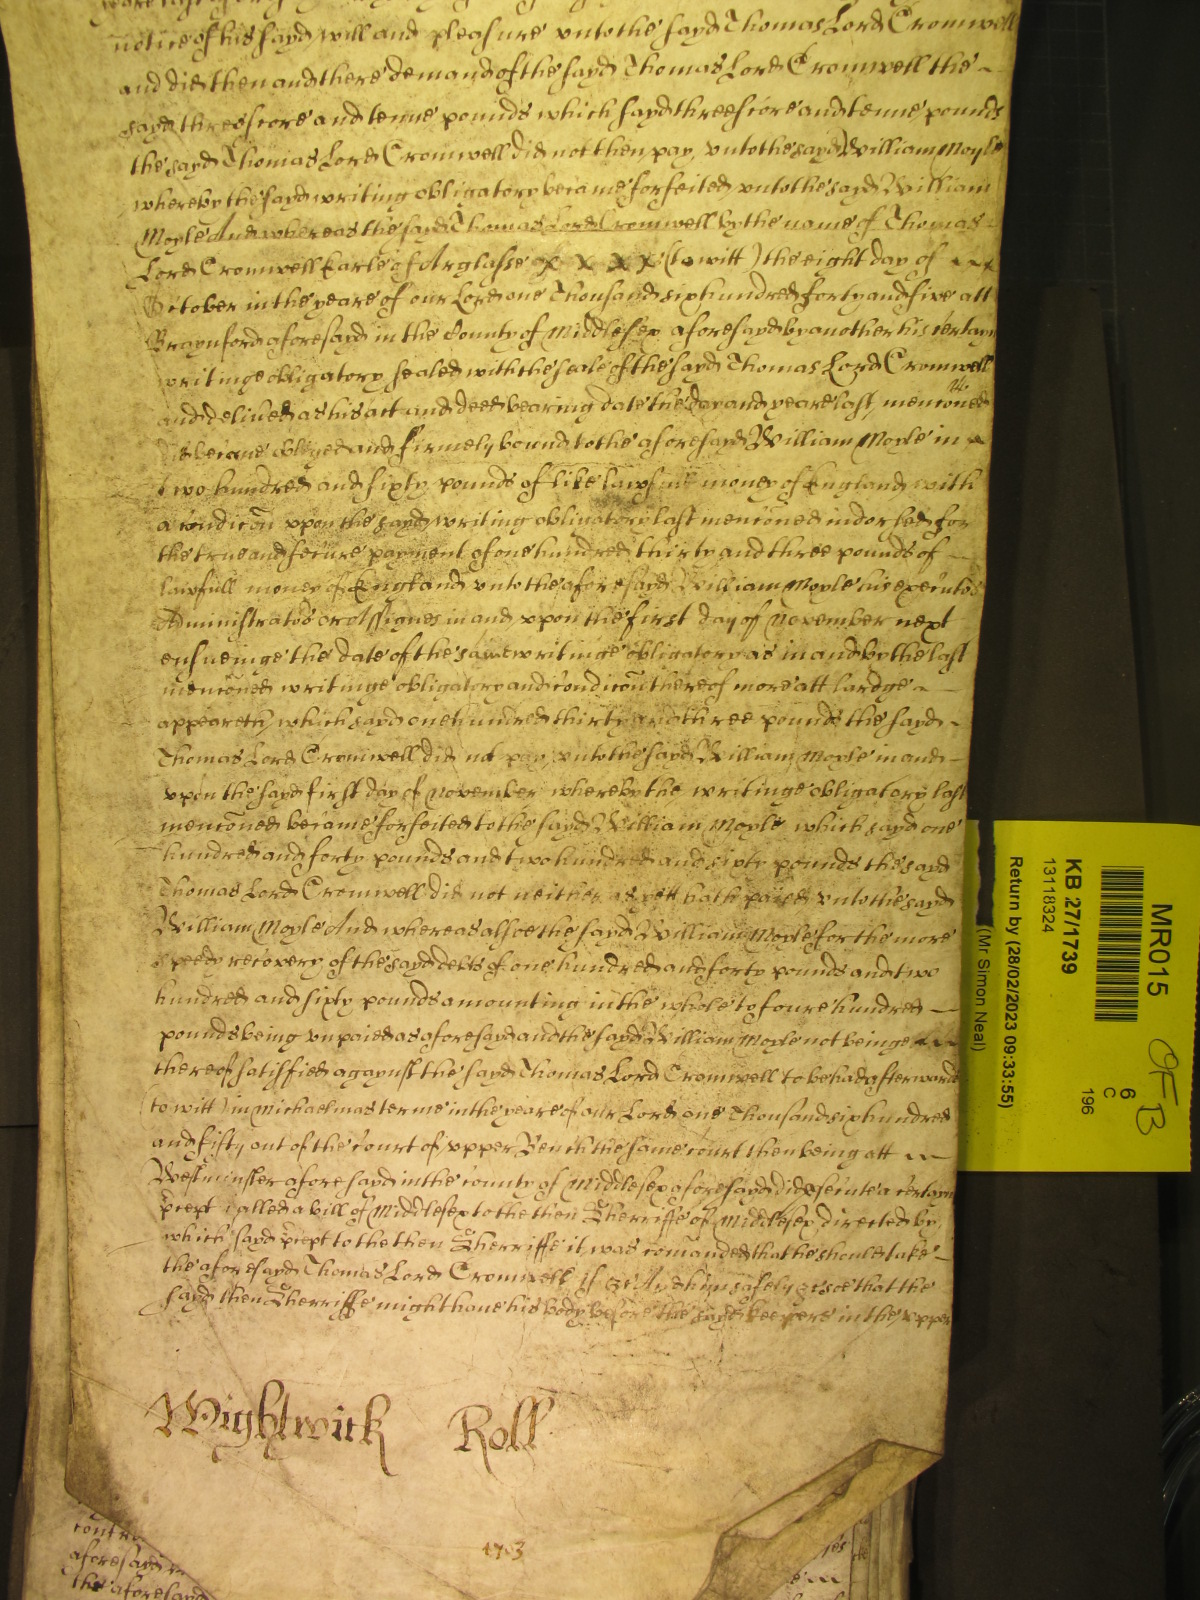 notice of his sayd will and pleasure unto the sayd Thomas Lord Cromwell
and did then and there demand of the sayd Thomas Lord Cromwell the
sayd threescore and tenne pounds which sayd threescore and tenne pounds
the sayd Thomas Lord Cromwell did not then pay vnto the sayd William Moyle
whereby the sayd writing obligatory became forfeited vnto the sayd William
Moyle And whereas the sayd Thomas Lord Cromwell by the name of Thomas
Lord Cromwell Earle of Arglasse x x x x (to witt) the eight day of
October in the yeare of our Lord one Thousand six hundred forty and five att
Braynford aforesayd in the County of Middlesex aforesayd by another his certayn
writinge obligatory sealed with the seale of the sayd Thomas Lord Cromwell
and delived as his act and deed bearing date the day and yeare last menconed
did became obliged and firmely bound to the aforesayd William Moyle in
two hundred and sixty pounds of like lawfull money of England with
a condicon vpon the sayd writing obligatory last menconed indorsed for
the true and secure payment of one hundred thirty and three pounds of
lawfull money of England vnto the aforesayd William Moyle his executors
Administrators or Assignes in and vpon the first day of November next
ensueinge the date of the same writinge obligatory as in and by the last
menconed writinge obligatory and condicon thereof more att lardge
appeareth which sayd one hundred thirty and three pounds the sayd
Thomas Lord Cromwell did not pay vnto the sayd William Moyle in and
vpon the sayd first day of November whereby the writinge obligatory last
menconed became forfeited to the sayd William Moyle which sayd one
hundred and forty pounds and two hundred and sixty pounds the sayd
Thomas Lord Cromwell did not neither as yett hath payed vnto the sayd
William Moyle And whereas alsoe the sayd William Moyle for the more
speedy recovery of the sayd debts of one hundred and forty pounds and two
hundred and sixty pounds amounting in the whole to foure hundred
pounds being vnpaied as aforesayd and the sayd William Moyle not beinge
thereof satisfied agaynst the sayd Thomas Lord Cromwell to be had afterwards
(to witt) in Michaelmas terme in the yeare of our Lord one Thousand six hundred
and fifty out of the Court of Vpper Bench the same court then being att
Westminster aforesayd in the county of Middlesex aforesayd did psecute a certayn
precept called a bill of Middlesex to the then Sherriffe of Middlesex directed by
which sayd precept to the then Sherriffe it was comanded that he should take
the aforesayd Thomas Lord Cromwell if &c And him safely &c soe that the
sayd then Sherriffe might haue his body before the sayd keepers in the vpper
Wightwick Roll
1703
contr
aforesayd
the aforesayd
MR015
KB 27/1739
13118324
Return by (28/02/2023 09:33:55)
(Mr Simon Neal)
6
C
196
OF
B